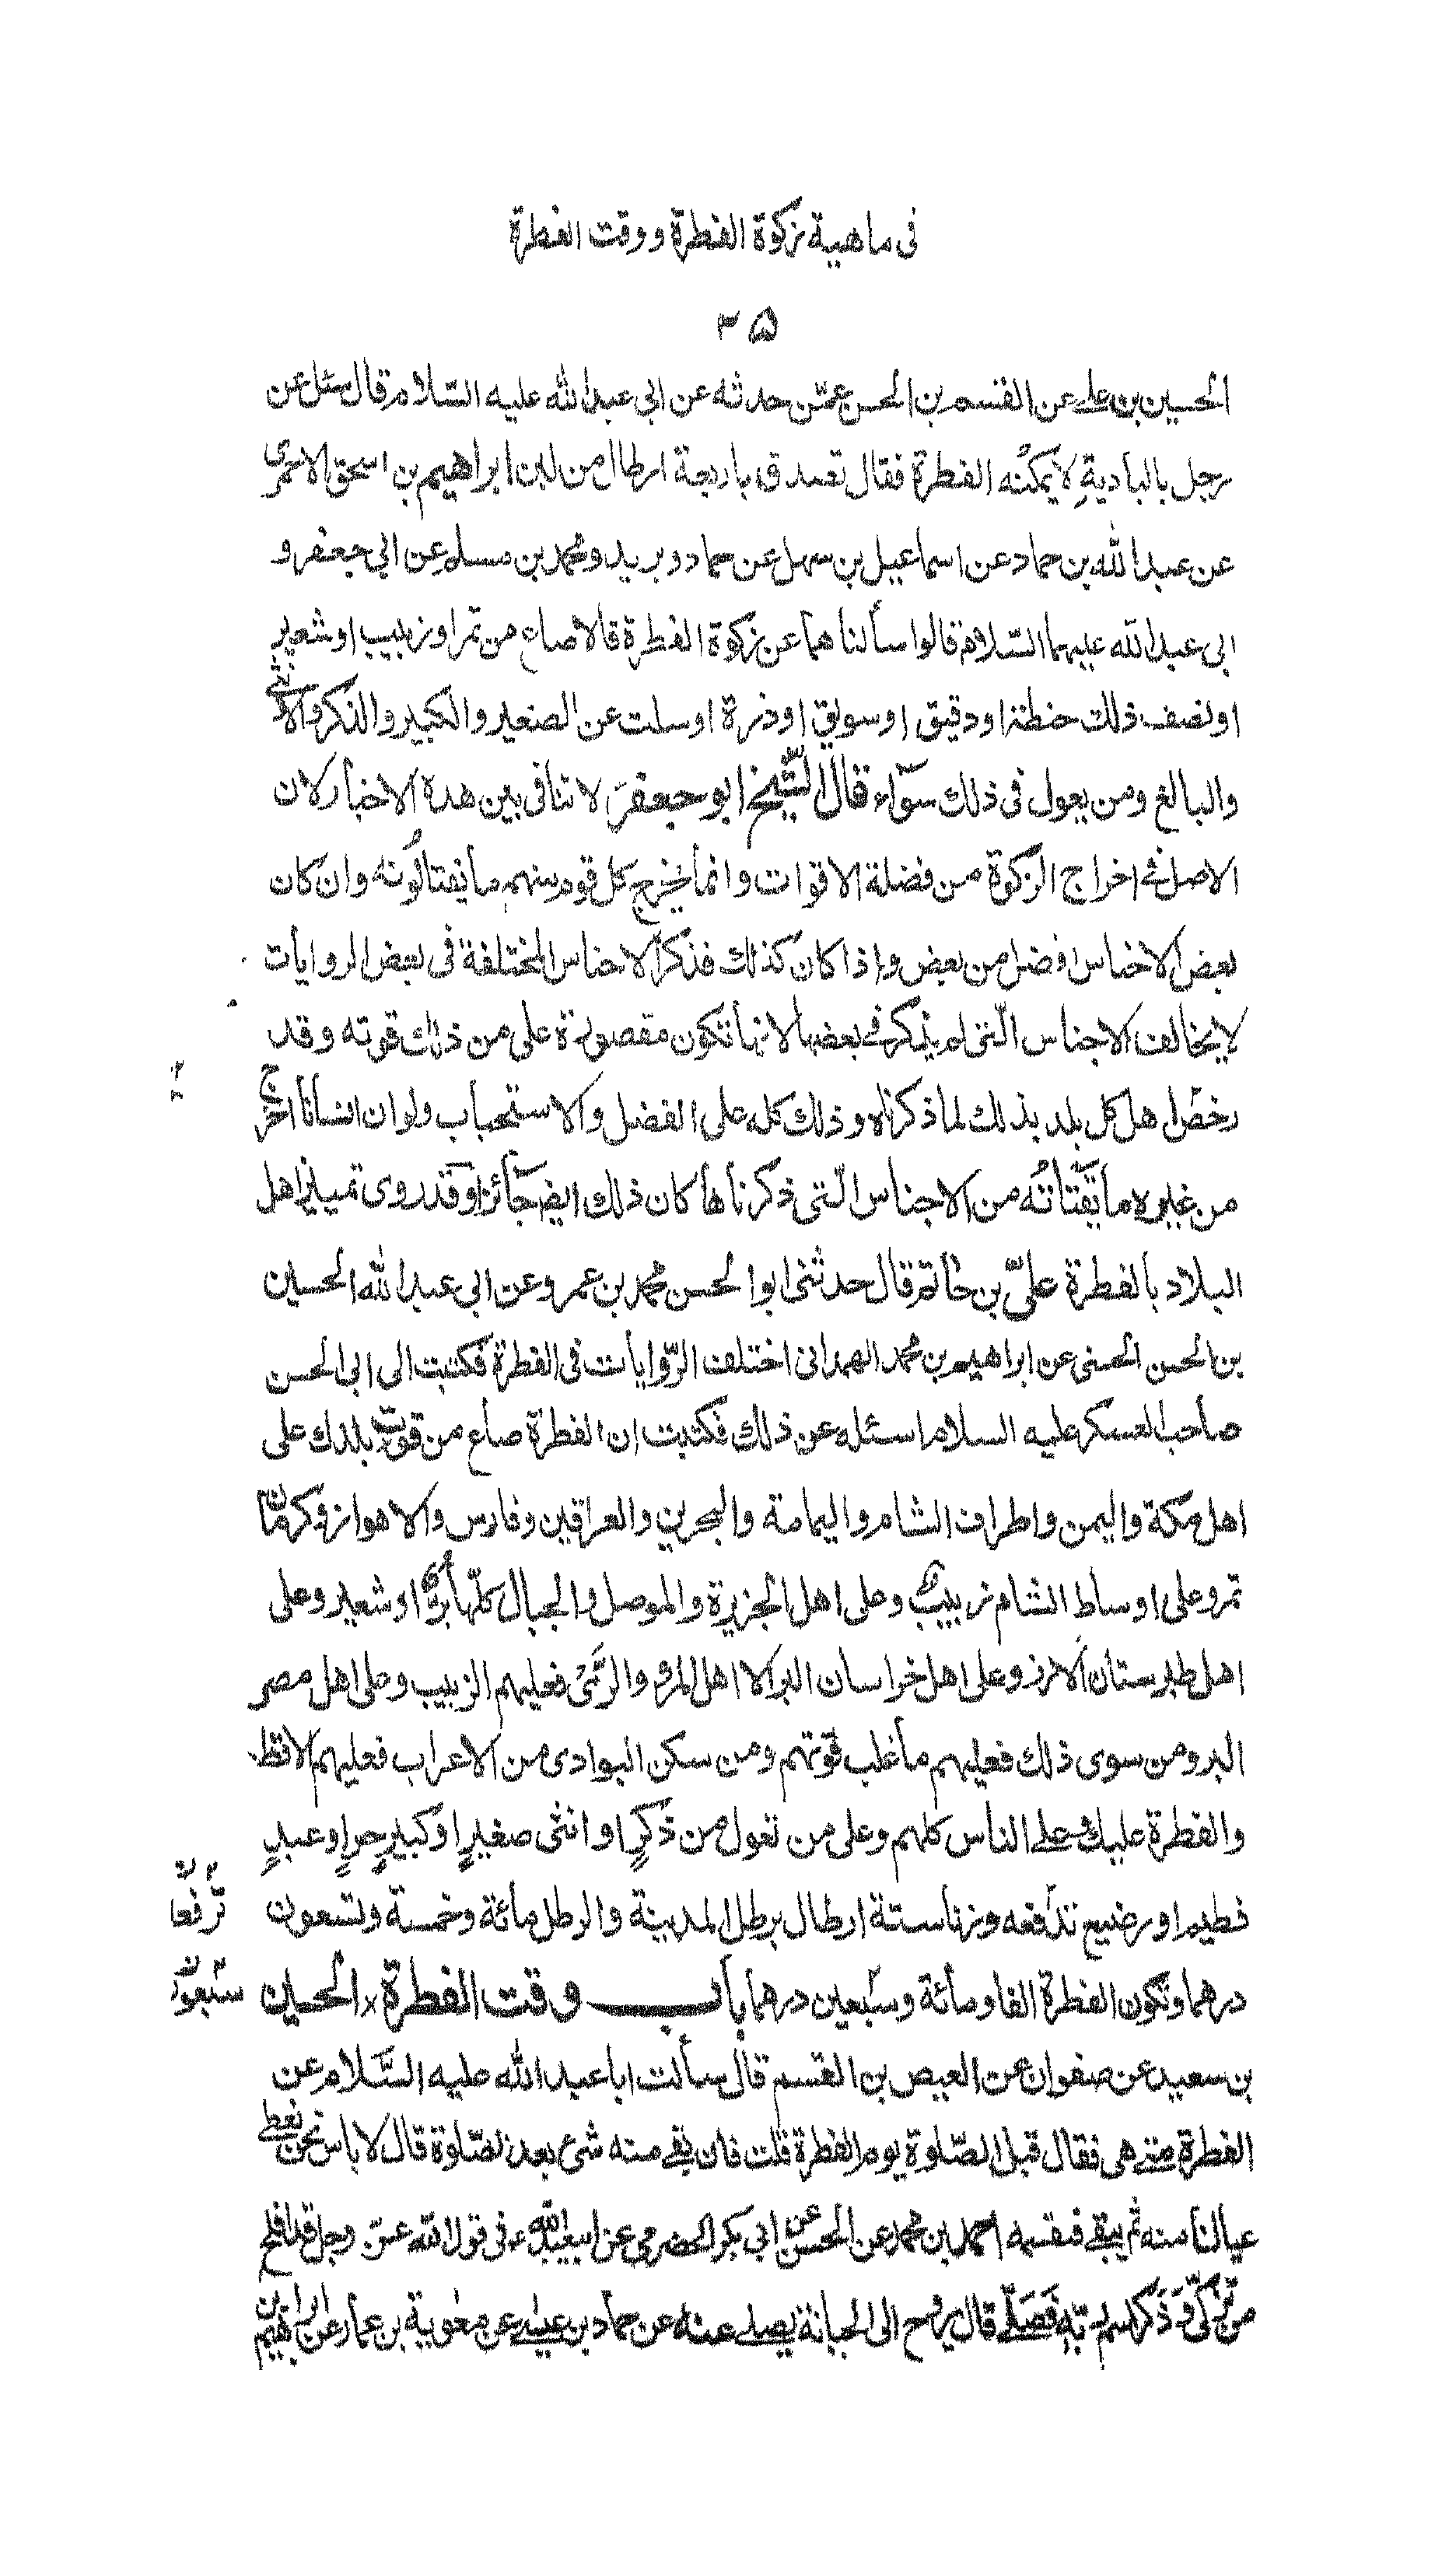 فى ماهية زكوة الفطرة ووقت الفطرة
٣٥
الحسين بن على عن القسم بن الحسن عمّن حدثه عن ابى عبدالله عليه السّلام قال سئل عن
رجل بالبادية لا يمكنه الفطرة فقال تصدق باربعة ارطال من لبن ابراهيم بن اسحق الاحمرى
عن عبدالله بن حماد عن اسماعيل بن سهل عن حماد وبريد ومحمد بن مسلم عن ابى جعفر و
ابى عبدالله عليهما السّلام قالوا سألناهما عن زكوة الفطرة قالا صاع من تمر او زبيب او شعير
او نصف ذلك حنطة او دقيق او سويق او ذرة او سلت عن الصغير والكبير والذكر والانثى
والبالغ ومن يعول فى ذلك سوآء قال الشّيخ ابو جعفر لا تنافى بين هذه الاخبار لان
الاصل فى اخراج الزكوة من فضلة الاقوات وانما يخرج كل قوم منهم ما يقتاتونه وان كان
بعض الاجناس افضل من بعض واذا كان كذلك فذكر الاجناس المختلفة فى بعض الروايات
لا يخالف الاجناس الّتى لم يذكر فى بعضها لانها تكون مقصورة على من ذلك قوته وقد
رخصّ اهل كل بلد بذلك لما ذكرناه وذلك كله على الفضل والاستحباب ولو ان انسانا اخرج
من غيره ما يقتاته من الاجناس الّتى ذكرناها كان ذلك ايضا جآئزا وقد روى تمييز اهل
البلاد بالفطرة علىّ بن حاتم قال حدثنى ابوا الحسن محمد بن عمرو عن ابى عبدالله الحسين
بن الحسن الحسنى عن ابراهيم بن محمد الهمدانى اختلف الرّوايات فى الفطرة فكتبت الى ابى الحسن
صاحب العسكر عليه السلام اسئله عن ذلك فكتبت ان الفطرة صاع من قوت بلدك على
اهل مكة واليمن واطراف الشام واليمامة والبحرين والعراقين وفارس والاهواز وكرمان
تمر وعلى اوساط الشام زبيب وعلى اهل الجزيرة والموصل والجبال كلّها برّ او شعير وعلى
اهل طبرستان الارز وعلى اهل خراسان البر الا اهل المرو والرّى فعليهم الزبيب وعلى اهل مصر
البر ومن سوى ذلك فعليهم ما غلب قوتهم ومن سكن البوادى من الاعراب فعليهم الاقط
والفطرة عليك وعلى الناس كلهم وعلى من تعول من ذكرٍ او انثى صغيرٍ او كبيرٍ حرٍ او عبدٍ
فطيم او رضيع تدفعه وزنا ستة ارطال برطل المدينة والرطل مائة وخمسة وتسعون
درهما وتكون الفطرة الفا ومائة وسبعين درهما باب وقت الفطرة × الحسين
سبعون
بن سعيد عن صفوان عن العيص بن القسم قال سألت ابا عبدالله عليه السّلام عن
الفطرة متى هى فقال قبل الصّلوة يوم الفطرة قلت فان بقى منه شئ بعد الصّلوة قال لا باس نحن نعطى
عيالنا منه ثم يبقى فنقسمه احمد بن محمد عن الحسن عن ابى بكر الحضرمى عن ابى عبدالله ع فى قول الله عزّ وجل قد افلح
من تزكّى وذكر اسم ربّه فصلّى قال يروح الى الجبانة يصلى عنه عن حماد بن عيسى عن معوية بن عمار عن ابراهيم بن